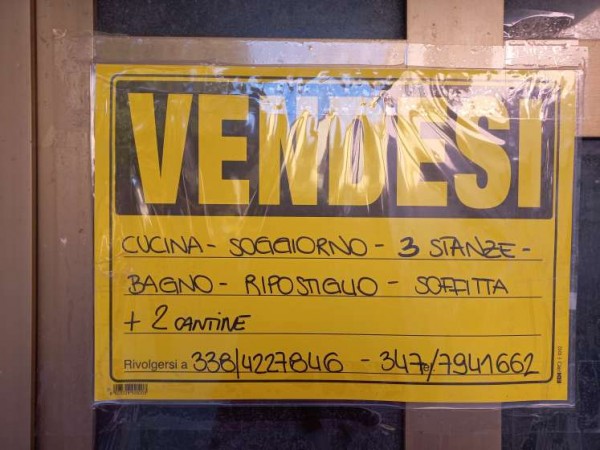 VENDESI
CUCINA - SOGGIORNO - 3 STANZE -
BAGNO - RIPOSTIGLIO - SOFFITTA
+ 2 CANTINE
Rivolgersi a 338/4227846 - 347/7941662